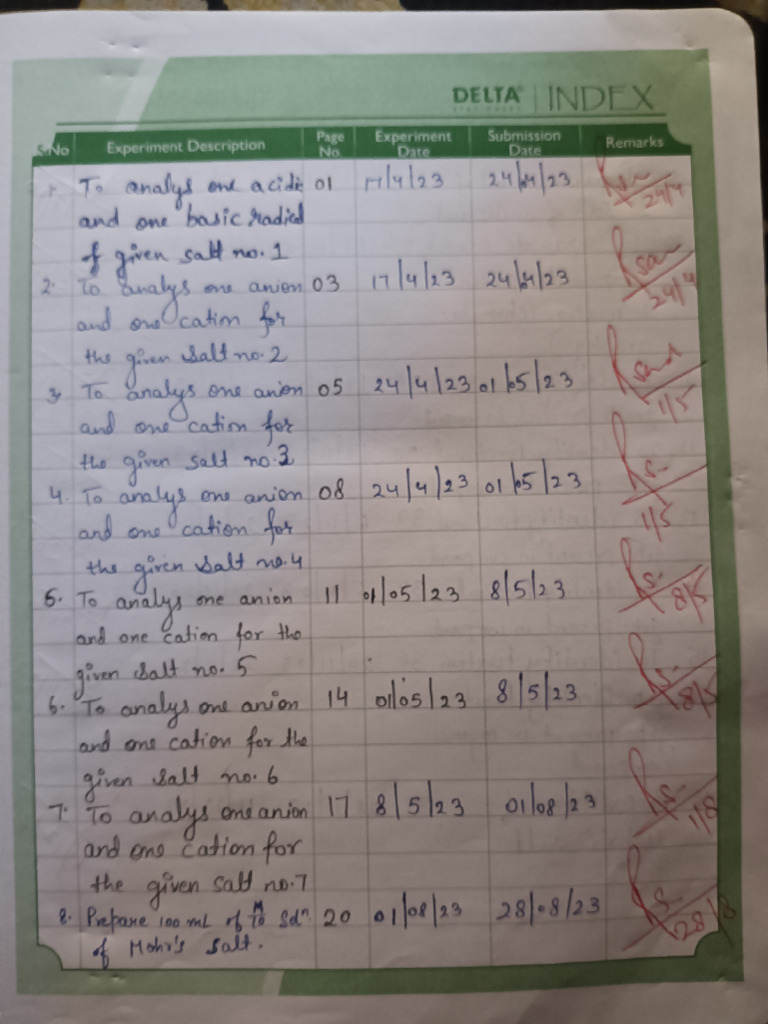 DELTA | INDEX
S.No Experiment Description Page No. Experiment Date Submission Date Remarks
1. To analys one acidic 01 17/4/23 24/4/23
and one basic radical 24/4
of given salt no. 1
2. To analys one anion 03 17/4/23 24/4/23
and one cation for 24/4
the given salt no. 2
3. To analys one anion 05 24/4/23 01/05/23
and one cation for 1/5
the given salt no. 3
4. To analys one anion 08 24/4/23 01/05/23
and one cation for 1/5
the given salt no. 4
5. To analys one anion 11 01/05/23 8/5/23 8/5
and one cation for the
given salt no. 5
6. To analys one anion 14 01/05/23 8/5/23 8/5
and one cation for the
given salt no. 6
7. To analys one anion 17 8/5/23 01/08/23 1/8
and one cation for
the given salt no. 7
8. Prepare 100 mL of M/10 Solⁿ 20 01/08/23 28/08/23 28/8
of Mohr's salt.